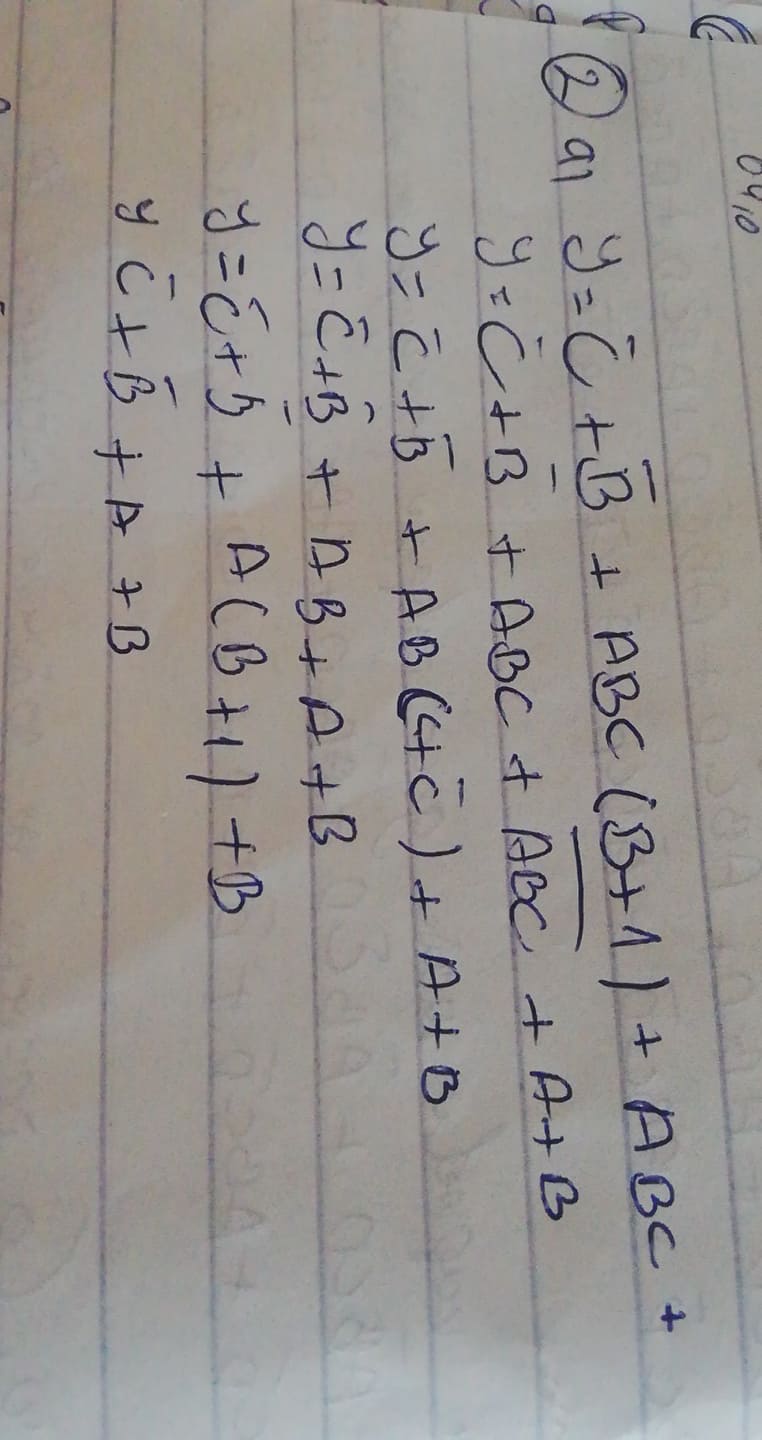 ② a) y = C̄ + B̄ + ABC (B+1) + ABC +
y = C̄ + B̄ + ABC + ABC̅ + A + B
y = C̄ + B̄ + AB (1+C̄) + A + B
y = C̄ + B̄ + AB + A + B
y = C̄ + B̄ + A(B+1) + B
y C̄ + B̄ + A + B